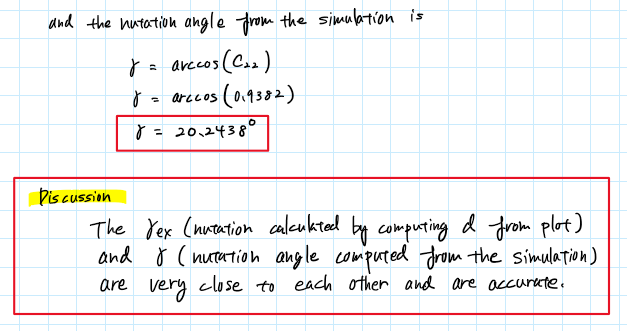 and the nutation angle from the simulation is
γ = arccos(C₂₂)
γ = arccos(0.9382)
γ = 20.2438°
Discussion
The γex (nutation calculated by computing d from plot)
and γ (nutation angle computed from the simulation)
are very close to each other and are accurate.